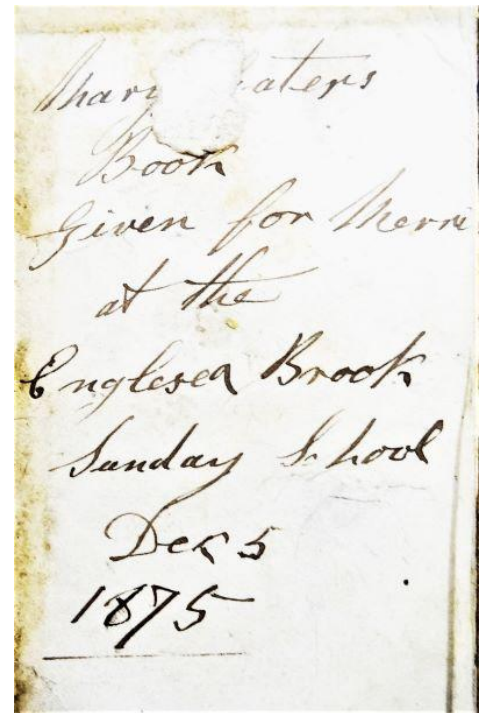 Mary
Book
Given for Merri
at the
Englesea Brook
Sunday School
Dec 5
1875